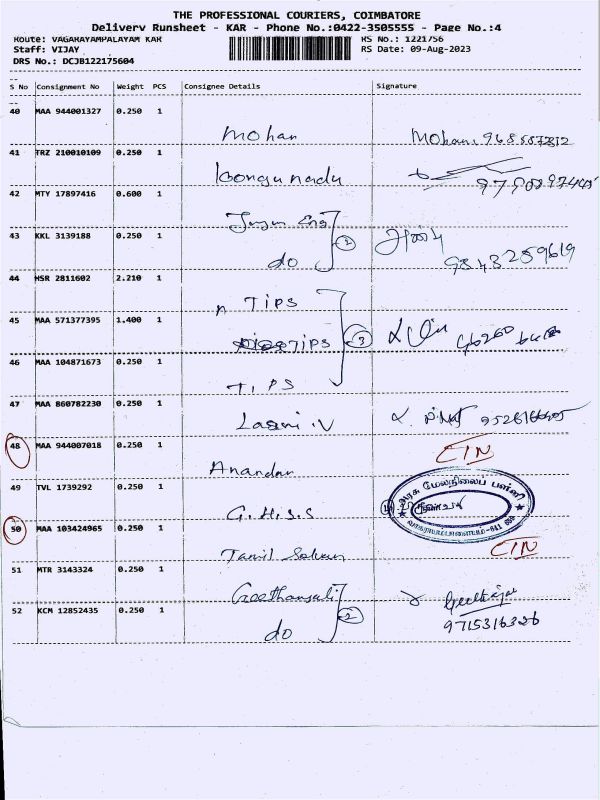 THE PROFESSIONAL COURIERS, COIMBATORE
Delivery Runsheet - KAR - Phone No.:0422-3505555 - Page No.:4
Route: VAGARAYAMPALAYAM KAR
RS No.: 1221756
Staff: VIJAY
RS Date: 09-Aug-2023
DRS No.: DCJB122175604
S No Consignment No Weight PCS Consignee Details Signature
40 MAA 944001327 0.250 1
Mohan Mohan
41 TRZ 210010109 0.250 1
kongunadu
42 MTY 17897416 0.600 1
Eng
43 KKL 3139188 0.250 1
do 2 9843259619
44 HSR 2811602 2.210 1
TIPS
45 MAA 571377395 1.400 1
TIPS 3
46 MAA 104871673 0.250 1
TIPS
47 MAA 860782230 0.250 1
48 MAA 944007018 0.250 1
Anandan CIN
49 TVL 1739292 0.250 1
G.H.S.S
அரசு மேல்நிலைப் பள்ளி
50 MAA 103424965 0.250 1
Tamil Selvan CIN
51 MTR 3143324 0.250 1
Geethanjali
52 KCM 12852435 0.250 1
do 2 9715316326